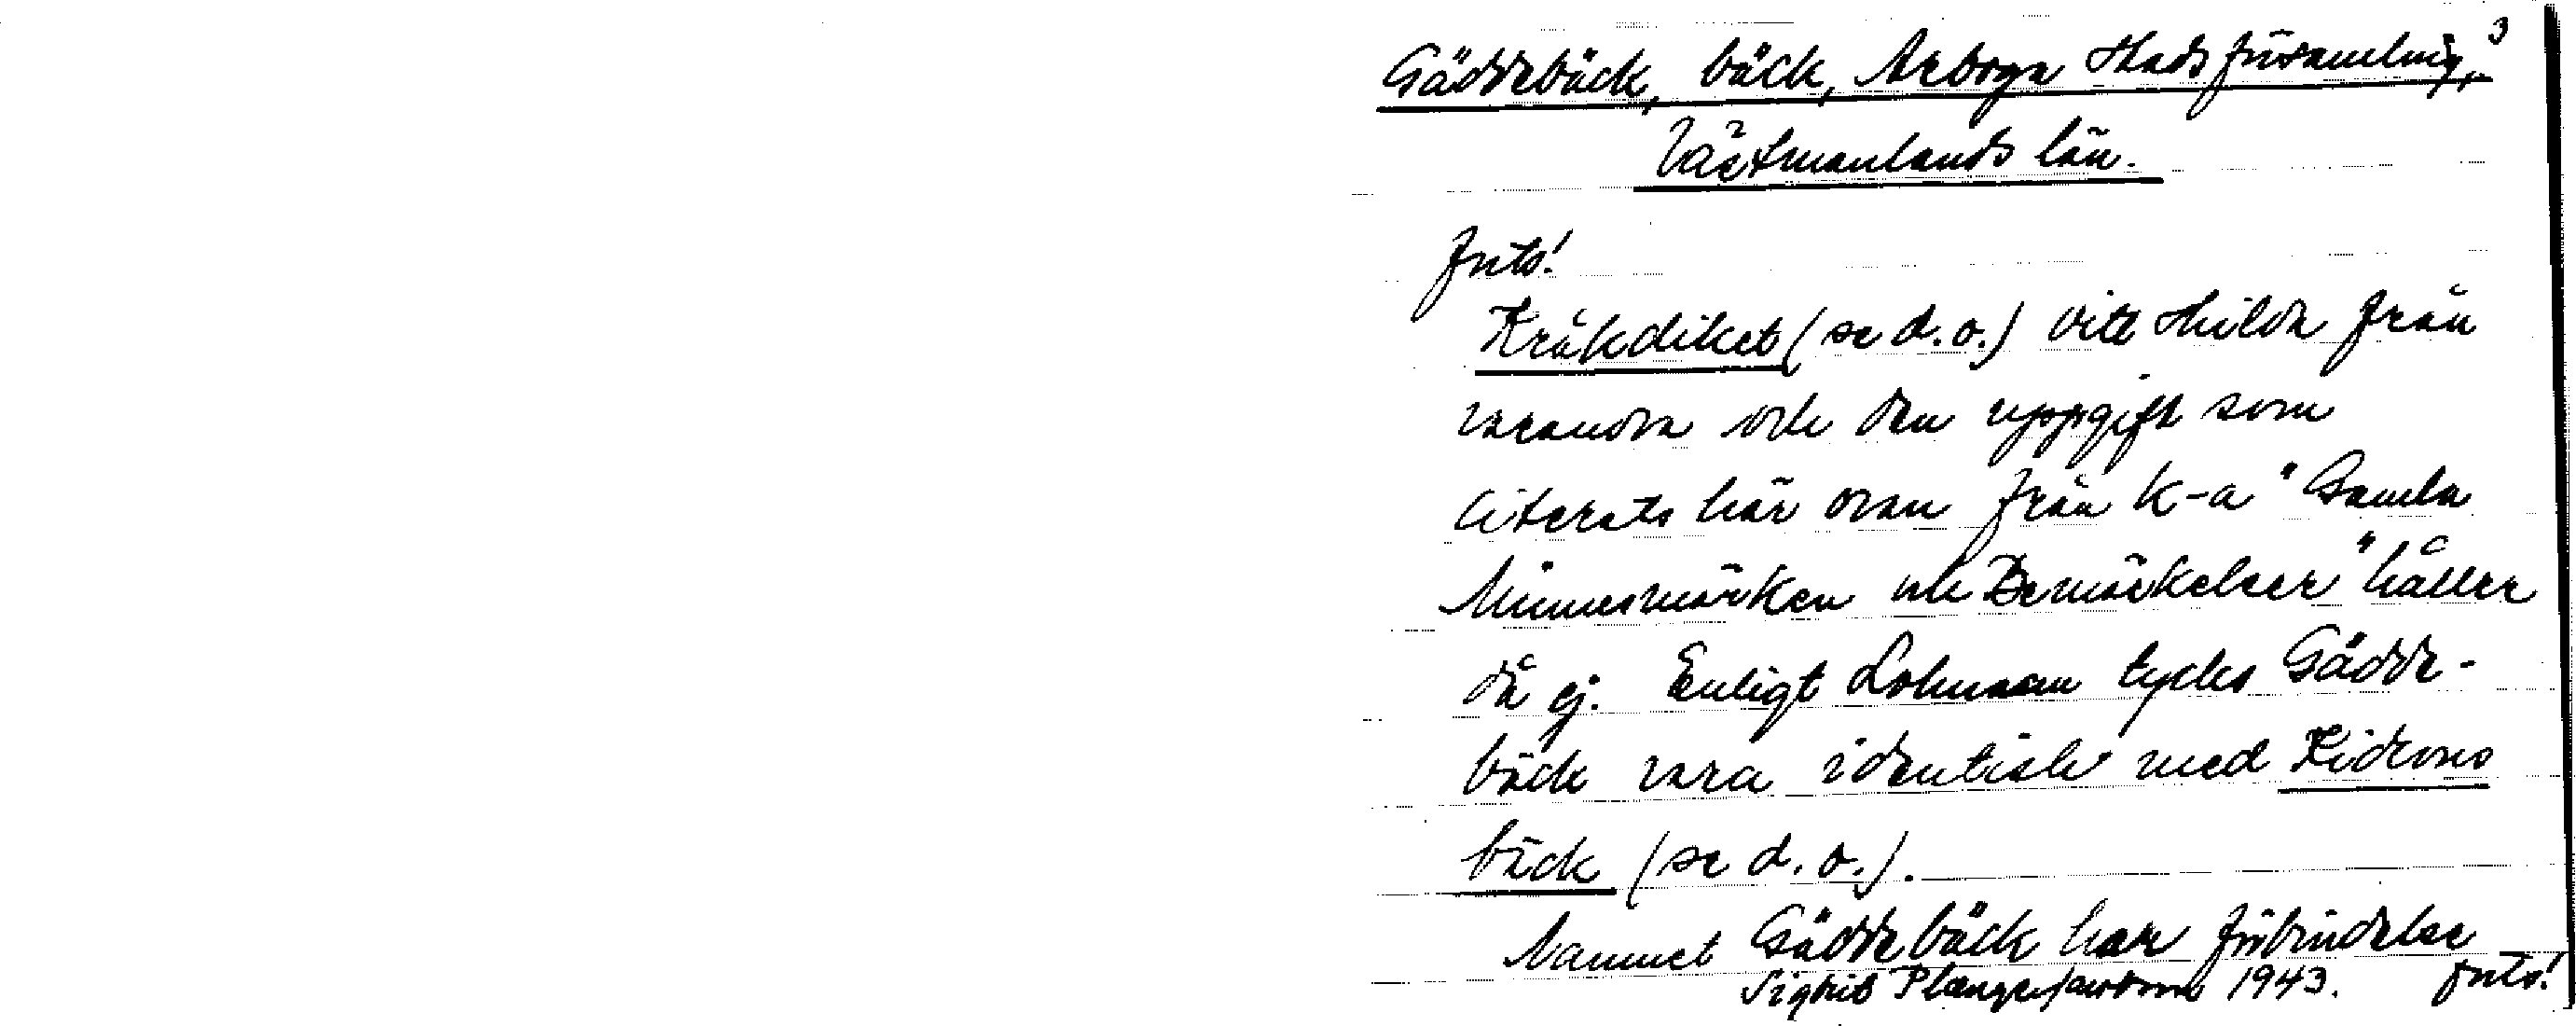 Gäddebäck, bäck, Arboga stads församling, 3
Västmanlands län.
forts!
Kråkdiket (se d.o.) vitt skilda från
varandra och den uppgift som
citerats här ovan från K-a "Gamla
Minnesmärken och Bemärkelser" håller
då ej. Enligt Lohman tycks Gädde-
bäck vara identisk med Kidrons
bäck (se d.o.).
Namnet Gäddebäck har förbindelse
Sigrid 1943. forts!